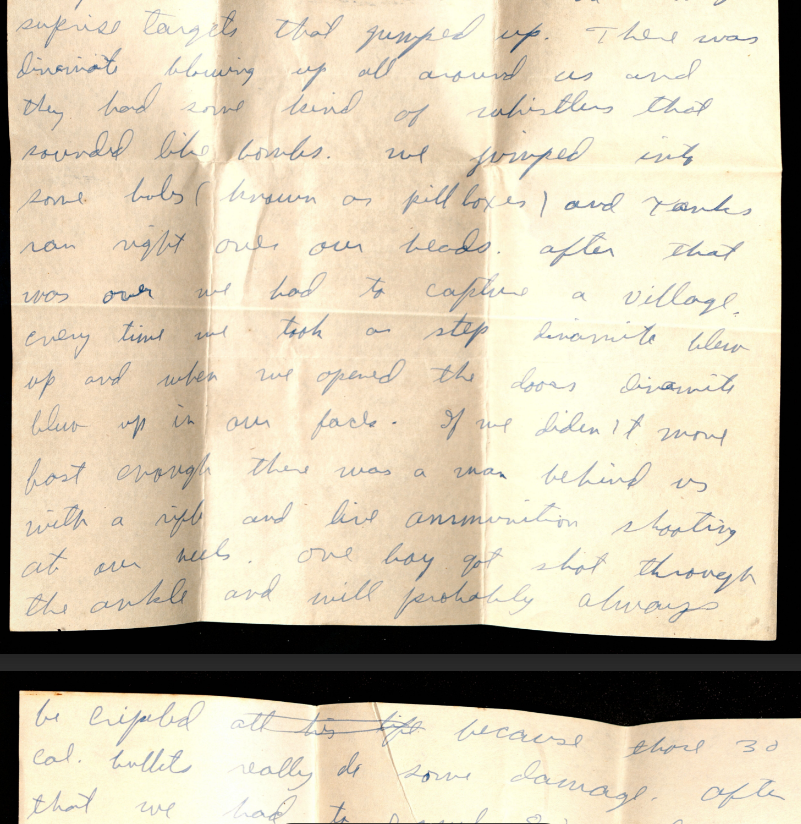 suprise targets that jumped up. There was
dinamite blowing up all around us and
they had some kind of whistlers that
sounded like bombs. we jumped into
some holes (known as pill boxes) and tanks
ran right over our heads. after that
was over we had to capture a village.
every time we took a step dinamite blew
up and when we opened the doors dinamite
blew up in our faces. If we diden't move
fast enough there was a man behind us
with a rifle and live ammunition shooting
at our heels. one boy got shot through
the ankle and will probably always
be cripled all his life because those 30
cal. bullets really do some damage. after
that we had to